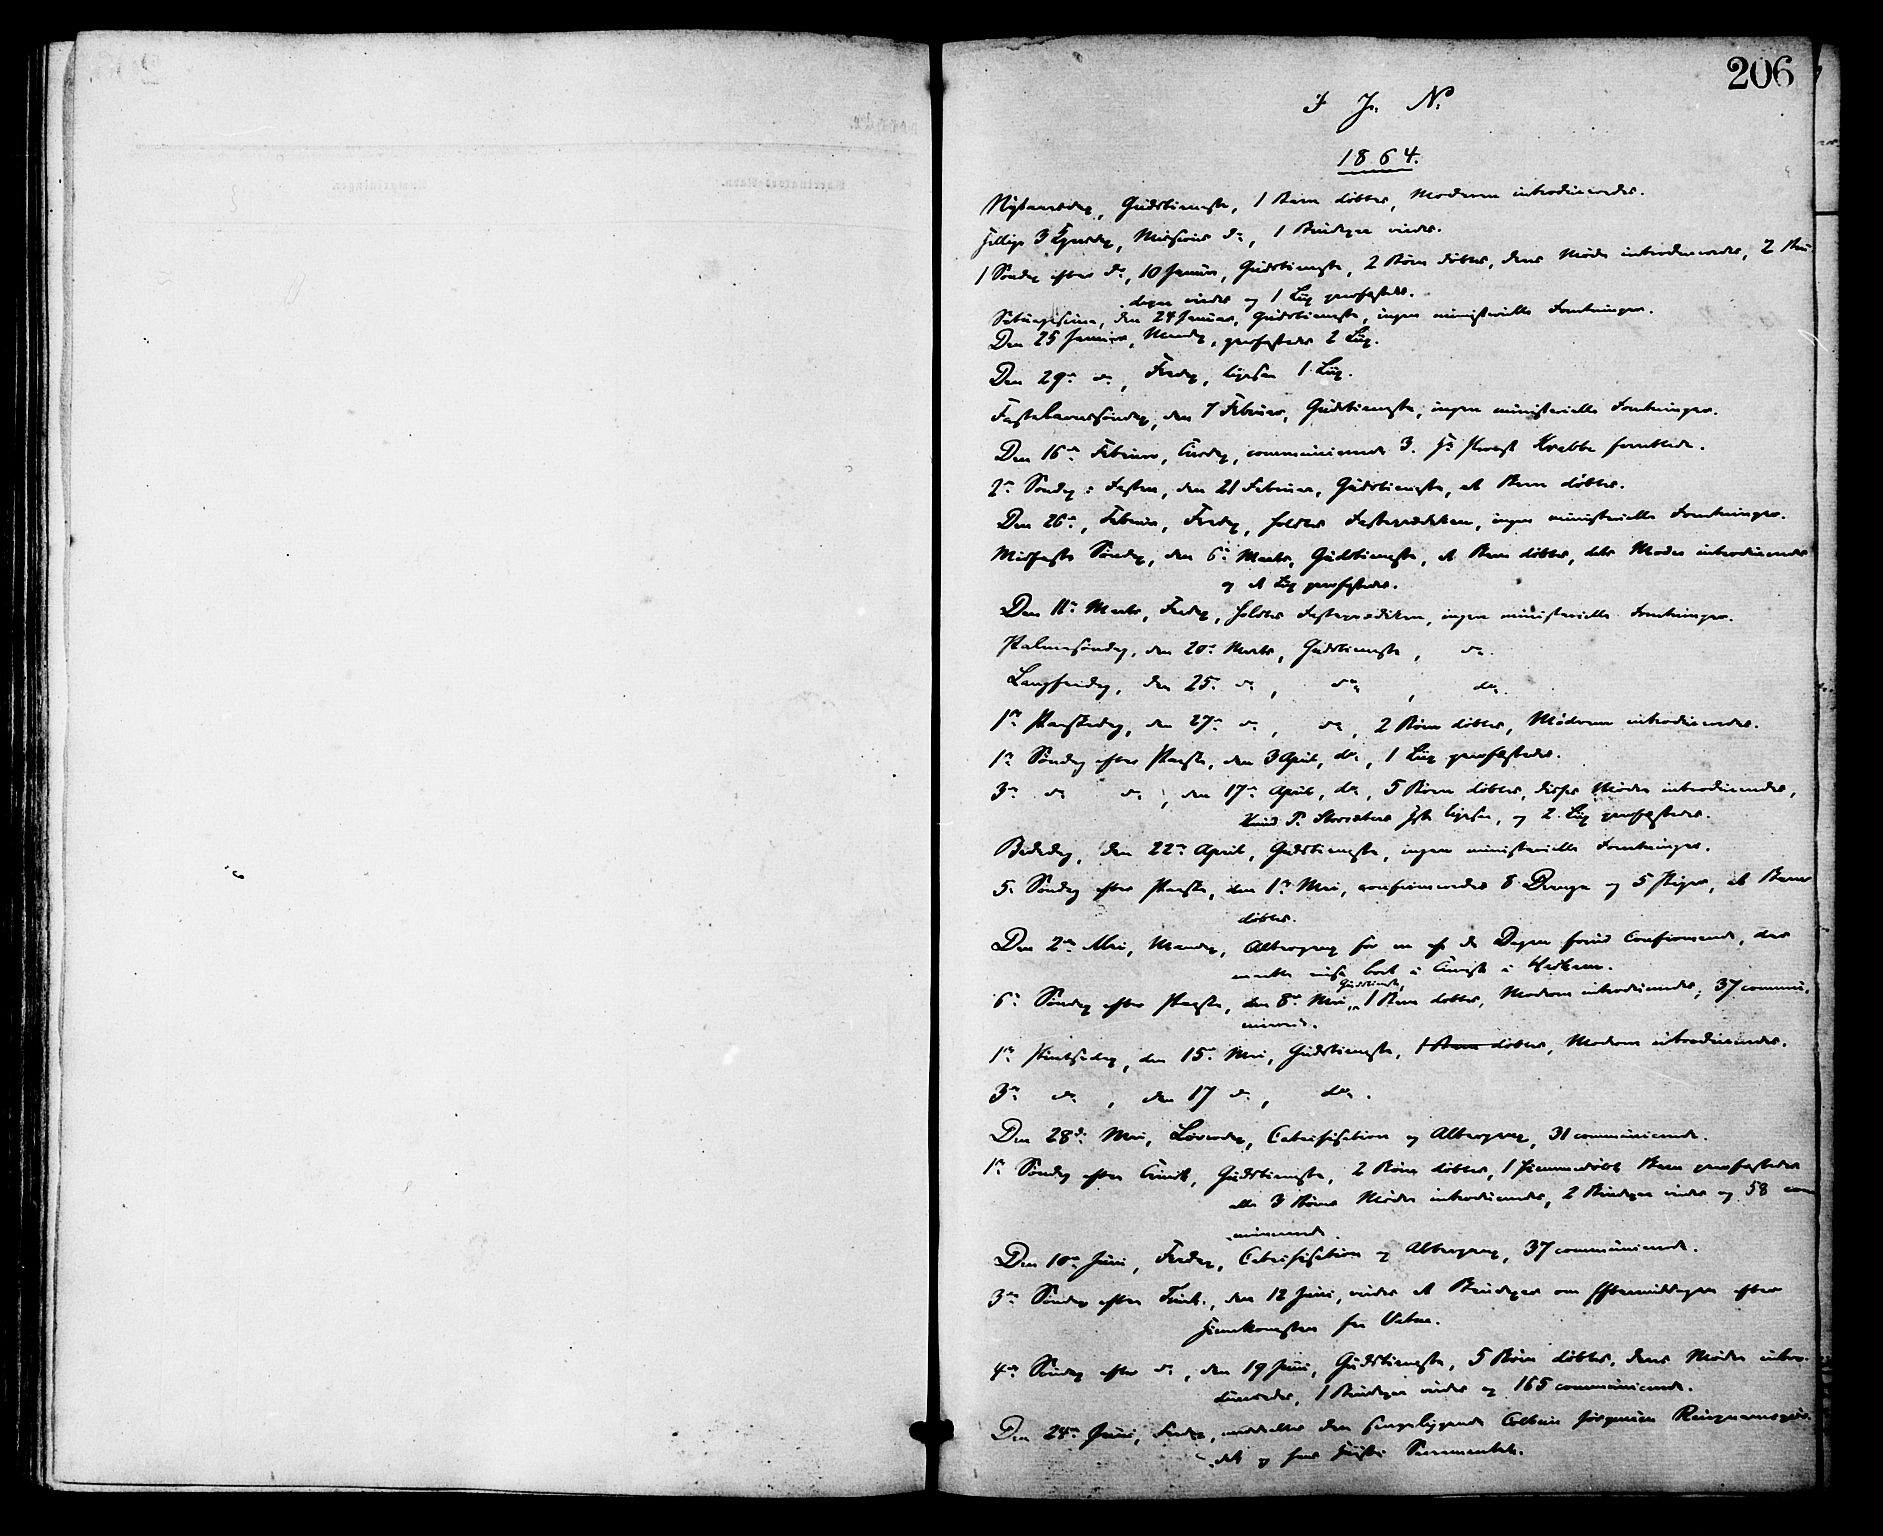 206
I J. N.
1864.
Nytaarsdag, Gudstieneste, 1 Barn døbtes, Moderen introduceredes.
Hellige 3 Kgersdag, Missions do, 1 Brudepar viedes.
1 Søndag efter do, 10 Januar, Gudstieneste, 2 Børn døbtes, deres Mødre introduceredes, 2 Bru-
depar viedes og 1 Liig jordfæstedes.
Septuagesima, den 24 Januar, Gudstieneste, ingen ministerielle Forretninger.
Den 25 Januar, Mandag, jordfæstedes 2 Liig.
Den 29de do, Fredag, ligesaa 1 Liig.
Fastelavnssøndag, den 7 Februar, Gudstieneste, ingen ministerielle Forretninger.
Den 16de Februar, Tirsdag, communicerede 3. Hr Provst Krabbe forrettede.
2den Søndag i Fasten, den 21 Februar, Gudstieneste, et Barn døbtes.
Den 26de, Februar, Fredag, holdtes Fasteprædiken, ingen ministerielle Forretninger.
Midfaste Søndag, den 6te Marts, Gudstieneste, et Barn døbtes, dets Moder introduceredes
og et Liig jordfæstedes.
Den 11te Marts, Fredag, holdtes Fasteprædiken, ingen ministerielle Forretninger.
Palmesøndag, den 20de Marts, Gudstieneste, do.
Langfredag, den 25de do, do, do.
1ste Paaskedag, den 27de do, do, 2 Børn døbtes, Mødrene introduceredes.
1ste Søndag efter Paaske, den 3 April, do, 1 Liig jordfæstedes.
3die do do, den 17de April, do, 5 Børn døbtes, disses Mødre introduceredes,
Knud P. ligesaa, og 2 Liig jordfæstedes.
Bededag, den 22de April, Gudstieneste, ingen ministerielle Forretninger.
5te Søndag efter Paaske, den 1ste Mai, confirmeredes 8 Drenge og 5 Piger, et Barn
døbtes.
Den 2den Mai, Mandag, Altergang for en af de Dagen forud Confirmerede, der
maatte reise bort i
6te Søndag efter Paaske, den 8de Mai, Gudstieneste, 1 Barn døbtes, Moderen introduceredes, 37 commu-
nicerede.
1ste Pintsedag, den 15de Mai, Gudstieneste, 1 Barn døbtes, Moderen introduceredes.
3die do, den 17 do, do.
Den 28de Mai, Løverdag, Catechisation og Altergang, 31 communicerede.
1ste Søndag efter Trinit., Gudstieneste, 2 Børn døbtes, 1 hjemmedøbt Barn
alle 3 Børns Mødre introduceredes, 2 Brudepar viedes og 58 com
municerede.
Den 10de Juni, Fredag, Catechisation og Altergang, 37 communicerede.
3die Søndag efter Trinit., den 12 Juni, viedes et Brudepar om Eftermiddagen efter
Hjemkomsten fra Vatne.
4de Søndag efter do, den 19 Juni, Gudstieneste, 5 Børn døbtes, deres Mødre intro-
duceredes, 1 Brudepar viedes og 165 communicerede.
Den 24de Juni, Fredag, meddeltes den sengeliggende
og hans Hustru Sacramentet.